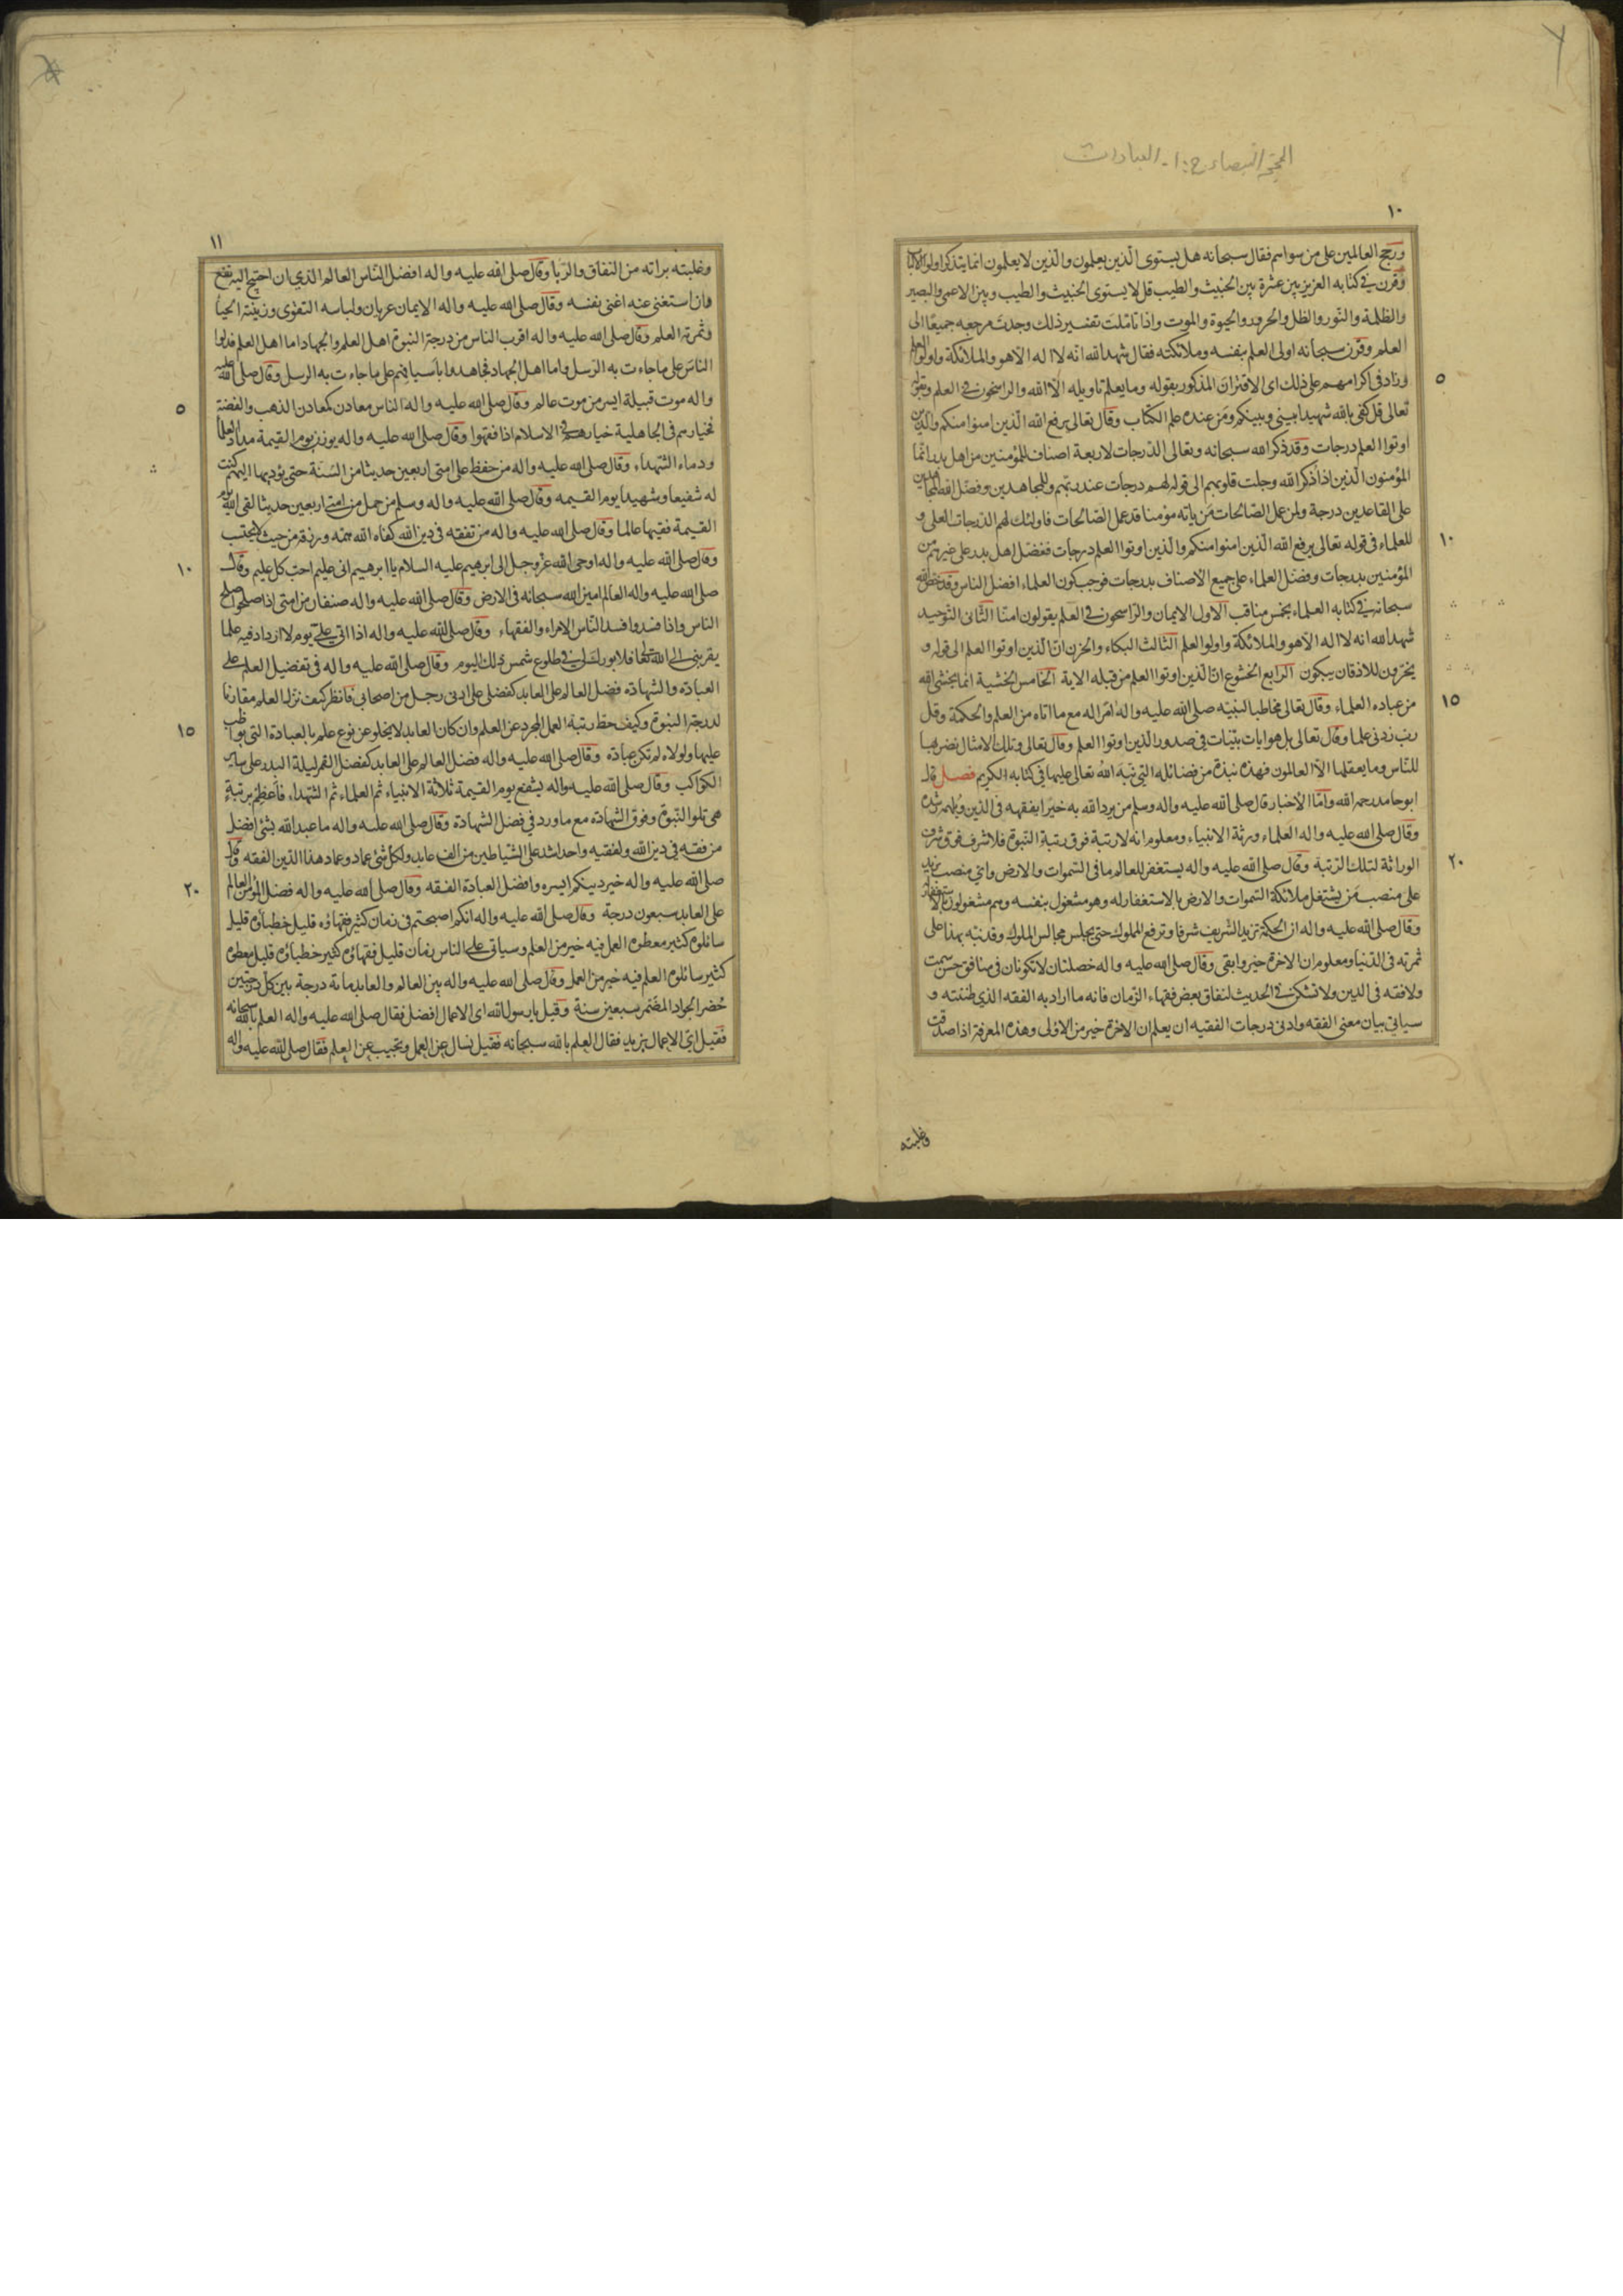 المحجة البيضاء ج: ١ - العبادات
١٠
ورجح العالمين على من سواهم فقال سبحانه هل يستوى الذين يعلمون والذين لا يعلمون انما يتذكر اولوا الالباب
وقرن في كتابه العزيز بين عشرة بين الخبيث والطيب قل لا يستوى الخبيث والطيب وبين الاعمى والبصير
والظلمة والنور والظل والحرور والحيوة والموت واذا تاملت تفسير ذلك وجدت مرجعه جميعًا الى
العلم وقرن سبحانه اولى العلم بنفسه وملائكته فقال شهد الله انه لا اله الا هو والملائكة واولوا العلم
وزاد في اكرامهم على ذلك اى الاقتران المذكور بقوله وما يعلم تاويله الا الله والراسخون في العلم وبقوله
٥
تعالى قل كفى بالله شهيدا بيني وبينكم ومن عنده علم الكتاب وقال تعالى يرفع الله الذين امنوا منكم والذين
اوتوا العلم درجات وقد ذكر الله سبحانه وتعالى الدرجات لاربعة اصناف للمؤمنين من اهل بدر انما
المؤمنون الذين اذا ذكر الله وجلت قلوبهم الى قوله لهم درجات عند ربهم وللمجاهدين وفضل الله المجاهدين
على القاعدين درجة ولمن عمل الصالحات من ياته مؤمنا قد عمل الصالحات فاولئك لهم الدرجات العلى و
للعلماء في قوله تعالى يرفع الله الذين امنوا منكم والذين اوتوا العلم درجات ففضل اهل بدر على غيرهم من
١٠
المؤمنين بدرجات وفضل العلماء على جميع الاصناف بدرجات فوجب كون العلماء افضل الناس وقد خص الله
سبحانه في كتابه العلماء بخمس مناقب الاول الايمان والراسخون في العلم يقولون امنا الثاني التوحيد
شهد الله انه لا اله الا هو والملائكة واولوا العلم الثالث البكاء والحزن ان الذين اوتوا العلم الى قوله و
يخرون للاذقان يبكون الرابع الخشوع ان الذين اوتوا العلم من قبله الاية الخامس الخشية انما يخشى الله
من عباده العلماء وقال تعالى مخاطبا لنبيه صلى الله عليه واله امرا له مع ما اتاه من العلم والحكمة وقل
١٥
رب زدني علما وقال تعالى بل هو ايات بينات في صدور الذين اوتوا العلم وقال تعالى وتلك الامثال نضربها
للناس وما يعقلها الا العالمون فهذه نبذة من فضائله التي نبه الله تعالى عليها في كتابه الكريم فصل قال
ابو حامد رحمه الله واما الاخبار قال صلى الله عليه واله وسلم من يرد الله به خيرا يفقهه في الدين ويلهمه رشده
وقال صلى الله عليه واله العلماء ورثة الانبياء ومعلوم انه لا رتبة فوق رتبة النبوة فلا شرف فوق شرف
الوراثة لتلك الرتبة وقال صلى الله عليه واله يستغفر للعالم ما في السموات والارض واي منصب يزيد
٢٠
على منصب من يشتغل ملائكة السموات والارض بالاستغفار له وهو مشغول بنفسه وهم مشغولون بالاستغفار
وقال صلى الله عليه واله ان الحكمة تزيد الشريف شرفا وترفع المملوك حتى يجلس مجالس الملوك وقد نبه بهذا على
ثمرته في الدنيا ومعلوم ان الاخرة خير وابقى وقال صلى الله عليه واله خصلتان لا تكونان في منافق حسن سمت
ولا فقه في الدين ولا تشكن في الحديث لنفاق بعض فقهاء الزمان فانه ما اراد به الفقه الذي ظننته و
سياتي بيان معنى الفقه وادنى درجات الفقيه ان يعلم ان الاخرة خير من الاولى وهذه المعرفة اذا صدقت
وغلبته
١١
وغلبته براته من النفاق والربا وقال صلى الله عليه واله افضل الناس العالم الذي ان احتيج اليه نفع
فان استغنى عنه اغنى نفسه وقال صلى الله عليه واله الايمان عريان ولباسه التقوى وزينته الحياء
وثمرته العلم وقال صلى الله عليه واله اقرب الناس من درجة النبوة اهل العلم والجهاد اما اهل العلم فدلوا
الناس على ما جاءت به الرسل واما اهل الجهاد فجاهدوا باسيافهم على ما جاءت به الرسل وقال صلى الله عليه
واله موت قبيلة ايسر من موت عالم وقال صلى الله عليه واله الناس معادن كمعادن الذهب والفضة
٥
فخيارهم في الجاهلية خيارهم في الاسلام اذا فقهوا وقال صلى الله عليه واله يوزن يوم القيمة مداد العلماء
ودماء الشهداء وقال صلى الله عليه واله من حفظ على امتى اربعين حديثا من السنة حتى يؤديها اليهم كنت
له شفيعا وشهيدا يوم القيمه وقال صلى الله عليه واله وسلم من حمل من امتي اربعين حديثا لقى الله يوم
القيمة فقيها عالما وقال صلى الله عليه واله من تفقه في دين الله كفاه الله همه ورزقه من حيث لا يحتسب
وقال صلى الله عليه واله اوحى الله عز وجل الى ابرهيم عليه السلام يا ابرهيم انى عليم احب كل عليم وقال
١٠
صلى الله عليه واله العالم امين الله سبحانه في الارض وقال صلى الله عليه واله صنفان من امتى اذا صلحوا صلح
الناس واذا فسدوا فسد الناس الامراء والفقهاء وقال صلى الله عليه واله اذا اتى على يوم لا ازداد فيه علما
يقربني الى الله تعالى فلا بورك لي في طلوع شمس ذلك اليوم وقال صلى الله عليه واله في تفضيل العلم على
العبادة والشهادة فضل العالم على العابد كفضلى على ادنى رجل من اصحابي فانظر كيف نزل العلم مقارنا
لدرجة النبوة وكيف حط رتبة العمل المجرد عن العلم وان كان العابد لا يخلو عن نوع علم بالعبادة التي يواظب
١٥
عليها ولولاه لم تكن عبادة وقال صلى الله عليه واله فضل العالم على العابد كفضل القمر ليلة البدر على سائر
الكواكب وقال صلى الله عليه واله يشفع يوم القيمة ثلاثة الانبياء ثم العلماء ثم الشهداء فاعظم برتبة
هي تلو النبوة وفوق الشهادة مع ما ورد في فضل الشهادة وقال صلى الله عليه واله ما عبد الله بشئ افضل
من فقه في دين الله ولفقيه واحد اشد على الشياطين من الف عابد ولكل شئ عماد وعماد هذا الدين الفقه وقال
صلى الله عليه واله خير دينكم ايسره وافضل العبادة الفقه وقال صلى الله عليه واله فضل المؤمن العالم
٢٠
على العابد سبعون درجة وقال صلى الله عليه واله انكم اصبحتم في زمان كثير فقهاؤه قليل خطباؤه قليل
سائلوه كثير معطوه العمل فيه خير من العلم وسياتي على الناس زمان قليل فقهاؤه كثير خطباؤه قليل معطوه
كثير سائلوه العلم فيه خير من العمل وقال صلى الله عليه واله بين العالم والعابد مائة درجة بين كل درجتين
حضر الجواد المضمر سبعين سنة وقيل يا رسول الله اى الاعمال افضل فقال صلى الله عليه واله العلم بالله سبحانه
فقيل اى الاعمال نريد فقال العلم بالله سبحانه فقيل نسال عن العمل وتجيب عن العلم فقال صلى الله عليه واله